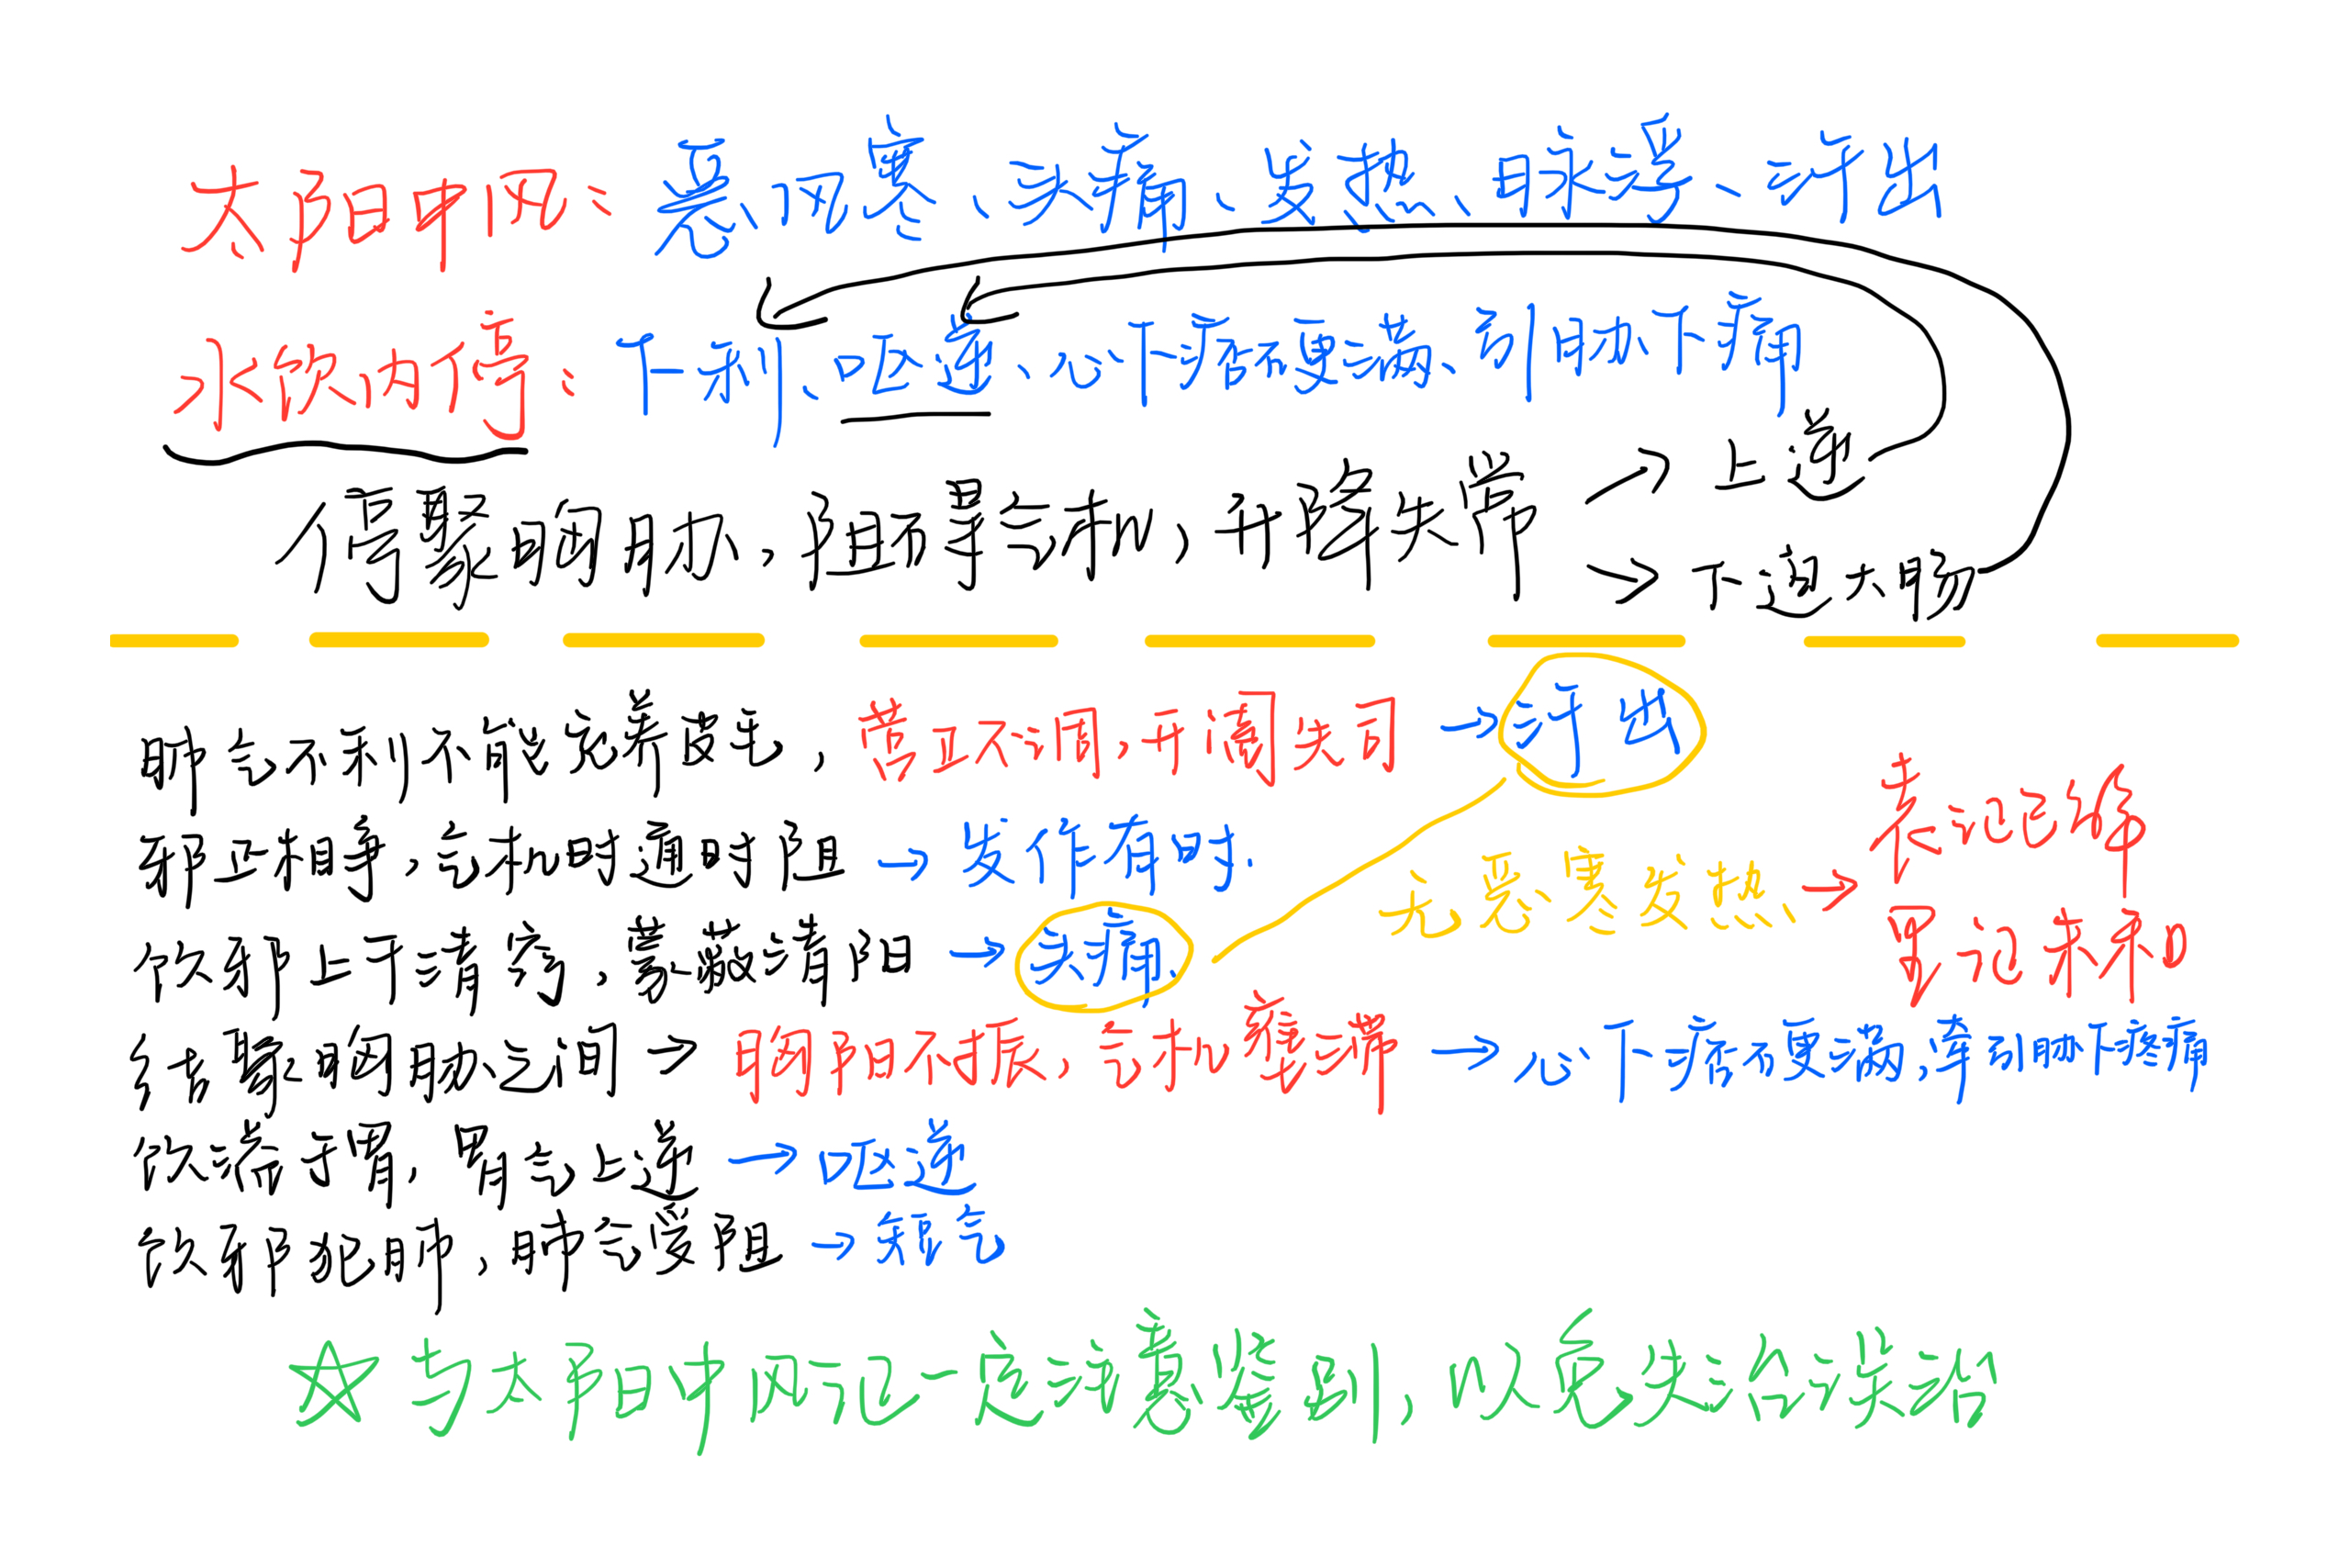 太阳中风：恶风寒、头痛、发热、脉浮、汗出
水饮内停：下利、呕逆、心下痞硬满、引胁下痛
停聚胸胁，阻碍气机，升降失常 → 上逆
→ 下迫大肠
肺气不利不能充养皮毛，营卫不调，开阖失司 → 汗出
邪正相争，气机时通时阻 → 发作有时.
无恶寒发热 → 表证已解
里证未和
饮邪上干清窍，蒙蔽清阳 → 头痛
结聚胸胁之间 → 胸阳不振，气机壅滞 → 心下痞硬满，牵引胁下疼痛
饮流于胃，胃气上逆 → 呕逆
饮邪犯肺，肺气受阻 → 短气
☆ 与太阳中风证一定注意鉴别，以免失治误治